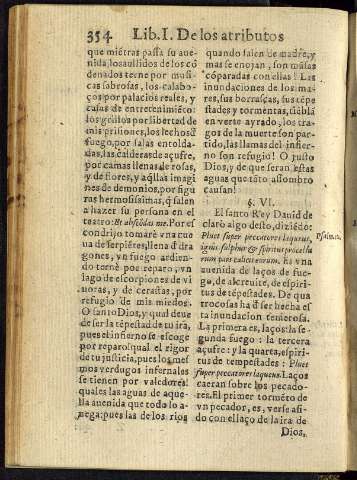 354 Lib. I. De los atributos
que miẽtras passa su aue-
nida, los aullidos de los cõ
denados terne por musi-
cas sabrosas, los calabo-
ços por palacios reales, y
casas de entretenimiẽto:
los grillos por libertad de
mis prisiones, los lechos d̃
fuego, por salas entolda-
das, las calderas de açufre,
por camas llenas de rosas,
y de flores, y aq̃llas imagi
nes de demonios, por figu
ras hermosissimas, q̃ salen
a hazer su persona en el
teatro: Et abscõdas me. Por es
condrijo tomarè vna cue
ua de serpiẽtes, llena d̃ dra
gones, vn fuego ardien-
do ternè por reparo, vn
lago de escorpiones de vi
uoras, y de cerastas, por
refugio de mis miedos.
O santo Dios, y qual deue
de ser la tẽpestad de tu ira,
pues el infierno se escoge
por reparo? qual el rigor
de tu justicia, pues los mes
mos verdugos infernales
se tienen por valedores?
quales las aguas de aque-
lla auenida que todo lo a-
nega: pues las de los rios
quando salen de madre, y
mas se enojan, son risas
cõparadas con ellas? Las
inundaciones de los ma-
res, sus borrascas, sus tẽpe
stades y tormentas, ſũ blã
en verte ayrado, los tra-
gos de la muerte son par-
tido, las llamas del infier-
no son refugio? O justo
Dios, y de que seran estas
aguas que tãto assombro
causan?
§. VI.
El santo Rey Dauid de
clarò algo desto, diziẽdo:
Pluet super peccatores laqueos,
ignis, sulphur & spiritus procella
rum pars calicis eorum. Es vna
auenida de laços de fue-
go, de alcreuite, de espiri-
tus de tẽpestades. De qua
tro cosas ha d̃ ser hecha es
ta inundacion temerosa.
La primera es, laços: la se
gunda fuego: la tercera
açufre: y la quarta, espiri-
tus de tempestades: Pluet
super peccatores laqueos. Laços
caeran sobre los pecado-
res. El primer tormẽto de
vn pecador, es, verse asi-
do con el laço de la ira de
Dios,
Psalm. 10.